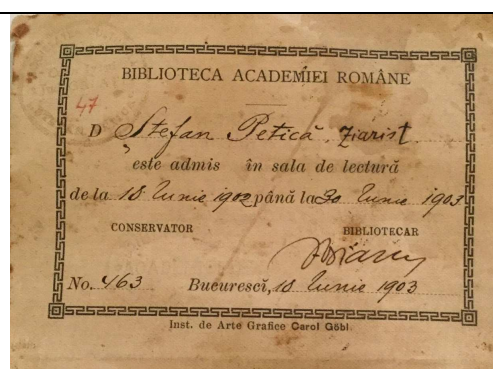 BIBLIOTECA ACADEMIEI ROMÂNE
47
D Ștefan Petică, ziarist
este admis în sala de lectură
de la 18 Iunie 1902 până la 30 Iunie 1903
CONSERVATOR BIBLIOTECAR
No. 463 Bucurescĭ, 18 Iunie 1903
Inst. de Arte Grafice Carol Göbl